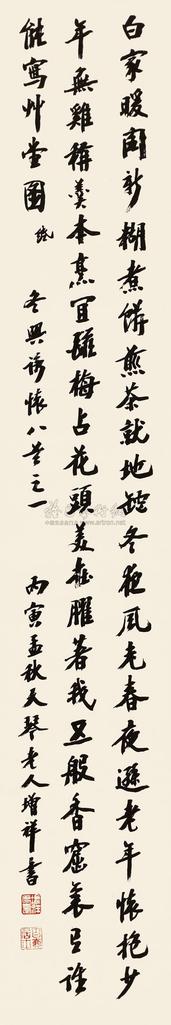 白家暖閣新糊煮餅煎茶就地鑪冬夜風光春夜遜老年懷抱少
年無雞稱羹本烹宜雌梅占花頭美在臞著我五般香窟裏有誰
能寫艸堂圖 紙
冬興詠懷八首之一
丙寅孟秋天琴老人增祥書